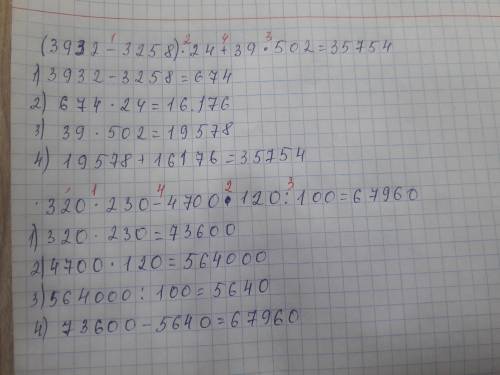 (3932-3258)·24+39·502=35754
1) 3932-3258=674
2) 674·24=16.176
3) 39·502=19578
4) 19578+16176=35754
320·230-4700·120:100=67960
1) 320·230=73600
2) 4700·120=564000
3) 564000:100=5640
4) 73600-5640=67960